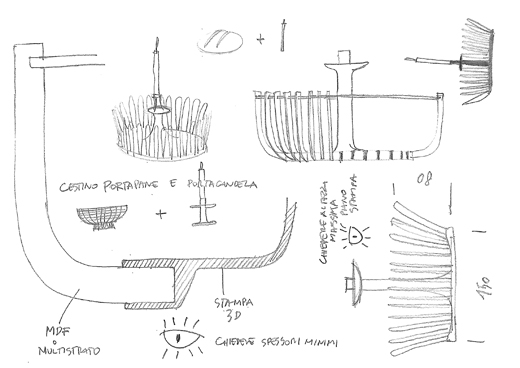 CESTINO PORTAPANE E PORTACANDELA
CHIEDERE ALTEZZA
MASSIMA
PIANO
STAMPA
80
150
STAMPA
3D
MDF
O
MULTISTRATO
CHIEDERE SPESSORI MINIMI